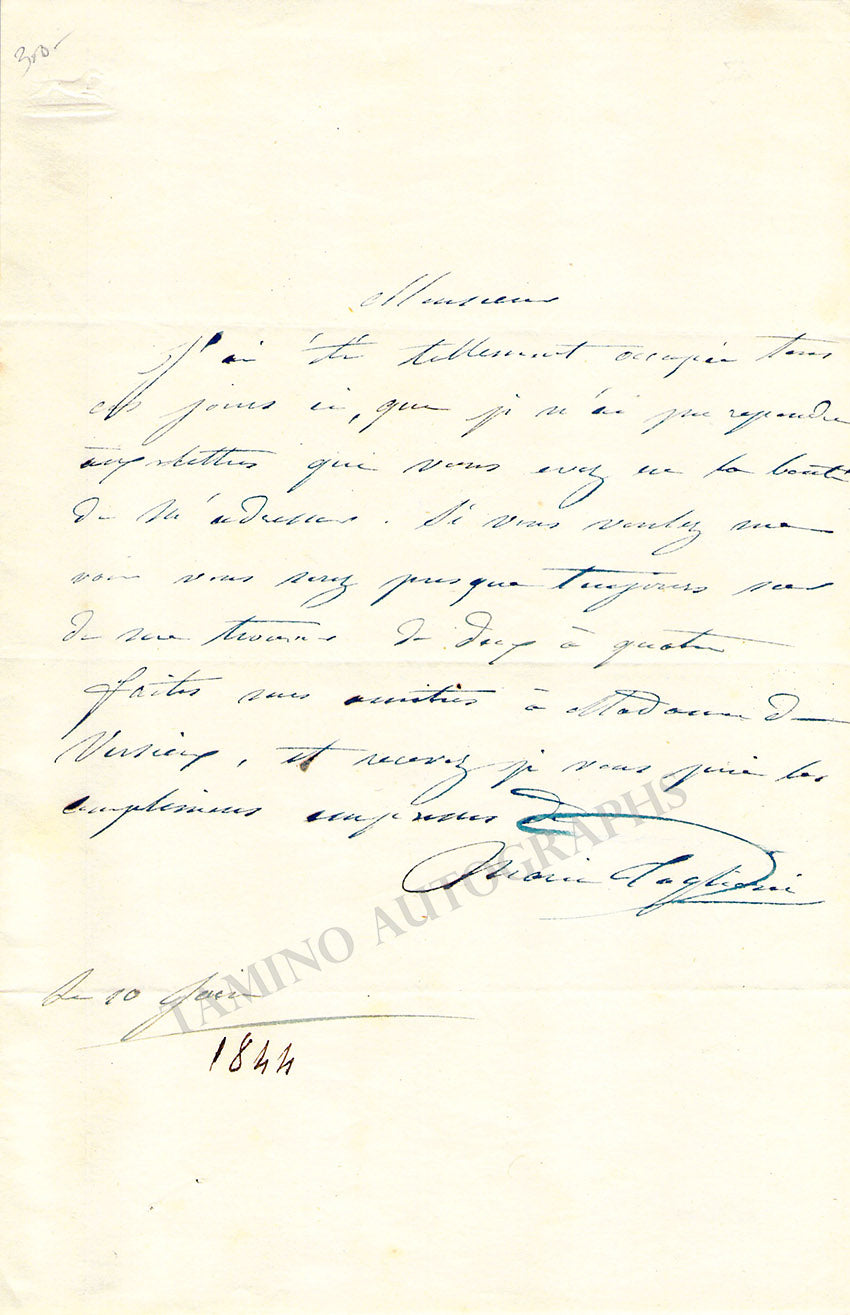 300-
Monsieur
J'ai été tellement occupée tous
ces jours ci, que je n'ai pu repondre
aux lettres que vous avez eu la bonté
de m'adresser. Si vous voulez me
voir vous serez presque toujours sur
de me trouver de deux à quatre
faites mes amitiés à Madame de
et recevez je vous prie les
complimens empressés de
Marie Taglioni
Le 10 Juin
1844
TAMINO AUTOGRAPHS